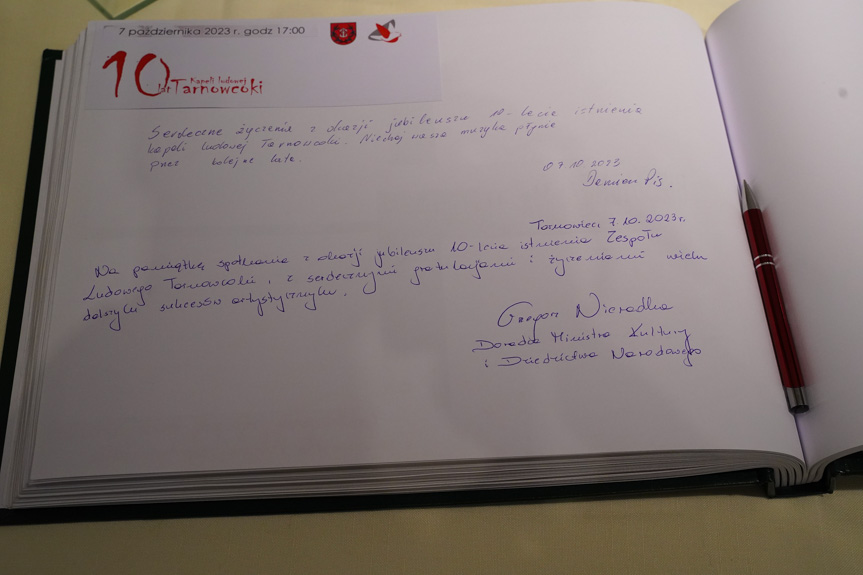 7 października 2023 r. godz 17:00
10 lat Kapeli ludowej
Tarnowcoki
Serdeczne życzenia z okazji jubileuszu 10-lecia istnienia
kapeli ludowej Tarnowcoki. Niechaj wasza muzyka płynie
przez kolejne lata.
07.10.2023
Damian Pis.
Tarnowiec, 7.10.2023r.
Na pamiątkę spotkania z okazji jubileuszu 10-lecia istnienia Zespołu
Ludowego Tarnowcoki, z serdecznymi gratulacjami i życzeniami wielu
dalszych sukcesów artystycznych.
Grzegorz Nieradka
Doradca Ministra Kultury
i Dziedzictwa Narodowego